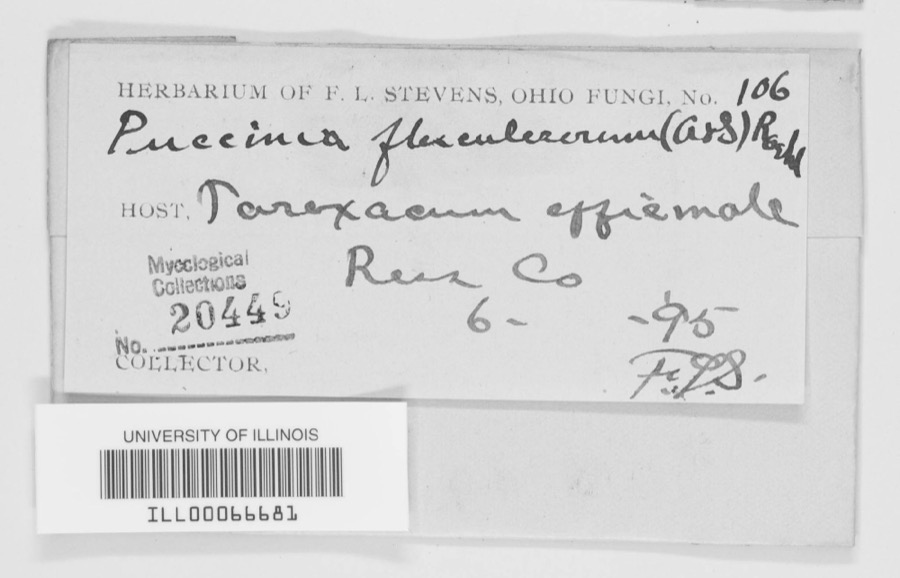 HERBARIUM OF F. L. STEVENS, OHIO FUNGI, No. 106
Puccinia flosculosorum (A&S)
HOST, Taraxacum officinale
Co
Mycological
Collections
20449
6 - - '95
No.
COLLECTOR, F.L.S.
UNIVERSITY OF ILLINOIS
ILL00066681